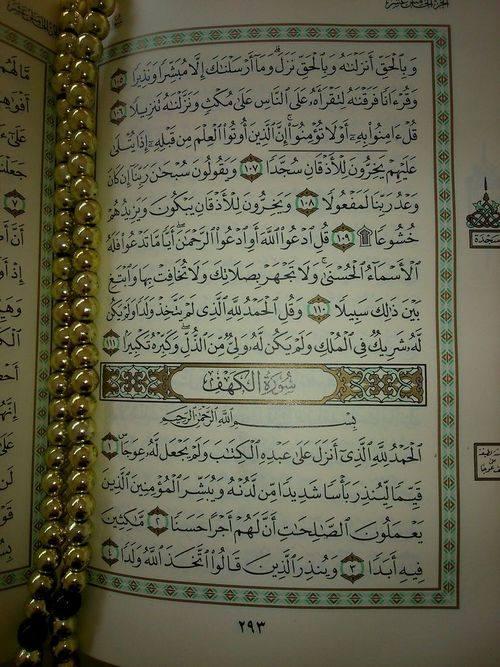 وَبِٱلْحَقِّ أَنزَلْنَٰهُ وَبِٱلْحَقِّ نَزَلَ ۗ وَمَآ أَرْسَلْنَٰكَ إِلَّا مُبَشِّرًا وَنَذِيرًا ١٠٥
وَقُرْءَانًا فَرَقْنَٰهُ لِتَقْرَأَهُۥ عَلَى ٱلنَّاسِ عَلَىٰ مُكْثٍ وَنَزَّلْنَٰهُ تَنزِيلًا ١٠٦
قُلْ ءَامِنُوا۟ بِهِۦٓ أَوْ لَا تُؤْمِنُوٓا۟ ۚ إِنَّ ٱلَّذِينَ أُوتُوا۟ ٱلْعِلْمَ مِن قَبْلِهِۦٓ إِذَا يُتْلَىٰ
عَلَيْهِمْ يَخِرُّونَ لِلْأَذْقَانِ سُجَّدًا ١٠٧ وَيَقُولُونَ سُبْحَٰنَ رَبِّنَآ إِن كَانَ
وَعْدُ رَبِّنَا لَمَفْعُولًا ١٠٨ وَيَخِرُّونَ لِلْأَذْقَانِ يَبْكُونَ وَيَزِيدُهُمْ
خُشُوعًا ۩ ١٠٩ قُلِ ٱدْعُوا۟ ٱللَّهَ أَوِ ٱدْعُوا۟ ٱلرَّحْمَٰنَ ۖ أَيًّا مَّا تَدْعُوا۟ فَلَهُ
ٱلْأَسْمَآءُ ٱلْحُسْنَىٰ ۚ وَلَا تَجْهَرْ بِصَلَاتِكَ وَلَا تُخَافِتْ بِهَا وَٱبْتَغِ
بَيْنَ ذَٰلِكَ سَبِيلًا ١١٠ وَقُلِ ٱلْحَمْدُ لِلَّهِ ٱلَّذِى لَمْ يَتَّخِذْ وَلَدًا وَلَمْ يَكُن
لَّهُۥ شَرِيكٌ فِى ٱلْمُلْكِ وَلَمْ يَكُن لَّهُۥ وَلِىٌّ مِّنَ ٱلذُّلِّ ۖ وَكَبِّرْهُ تَكْبِيرًۢا ١١١
سُورَةُ الكَهْفِ
بِسْمِ ٱللَّهِ ٱلرَّحْمَٰنِ ٱلرَّحِيمِ
ٱلْحَمْدُ لِلَّهِ ٱلَّذِىٓ أَنزَلَ عَلَىٰ عَبْدِهِ ٱلْكِتَٰبَ وَلَمْ يَجْعَل لَّهُۥ عِوَجَا ۜ ١
قَيِّمًا لِّيُنذِرَ بَأْسًا شَدِيدًا مِّن لَّدُنْهُ وَيُبَشِّرَ ٱلْمُؤْمِنِينَ ٱلَّذِينَ
يَعْمَلُونَ ٱلصَّٰلِحَٰتِ أَنَّ لَهُمْ أَجْرًا حَسَنًا ٢ مَّٰكِثِينَ
فِيهِ أَبَدًا ٣ وَيُنذِرَ ٱلَّذِينَ قَالُوا۟ ٱتَّخَذَ ٱللَّهُ وَلَدًا ٤
٢٩٣